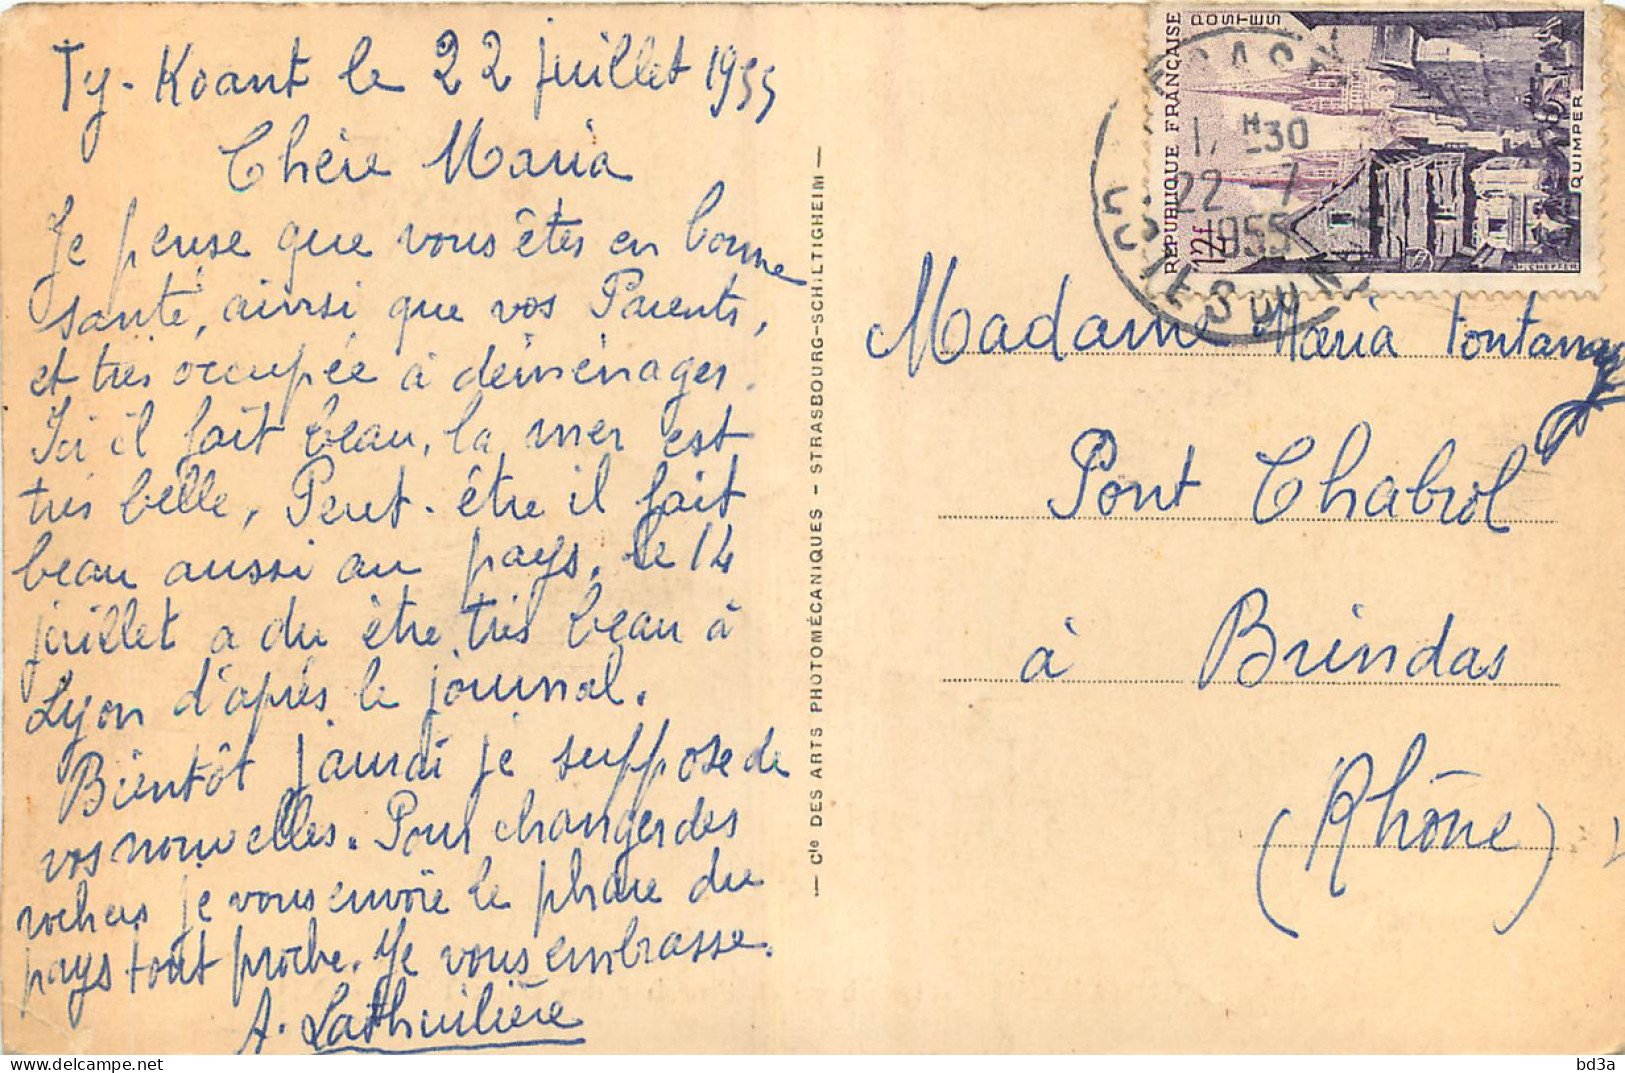 Ty-Koant le 22 juillet 1955
Chère Maria
Je pense que vous êtes en bonne
santé, ainsi que vos Parents,
et très occupée à déménager.
Ici il fait beau, la mer est
très belle, Peut-être il fait
beau aussi au pays. Le 14
juillet a du être très beau à
Lyon d'après le journal.
Bientôt j'aurai je suppose de
vos nouvelles. Pour changer des
rochers je vous envoie le phare du
pays tout proche. Je vous embrasse.
A. Lathuilière
— Cie DES ARTS PHOTOMÉCANIQUES - STRASBOURG-SCHILTIGHEIM —
REPUBLIQUE FRANÇAISE
POSTES
12f
QUIMPER
H30
22 -7
1955
CÔTES DU N
Madame Maria Fontanay
Pont Chabrol
à Brindas
(Rhône)
bd3a